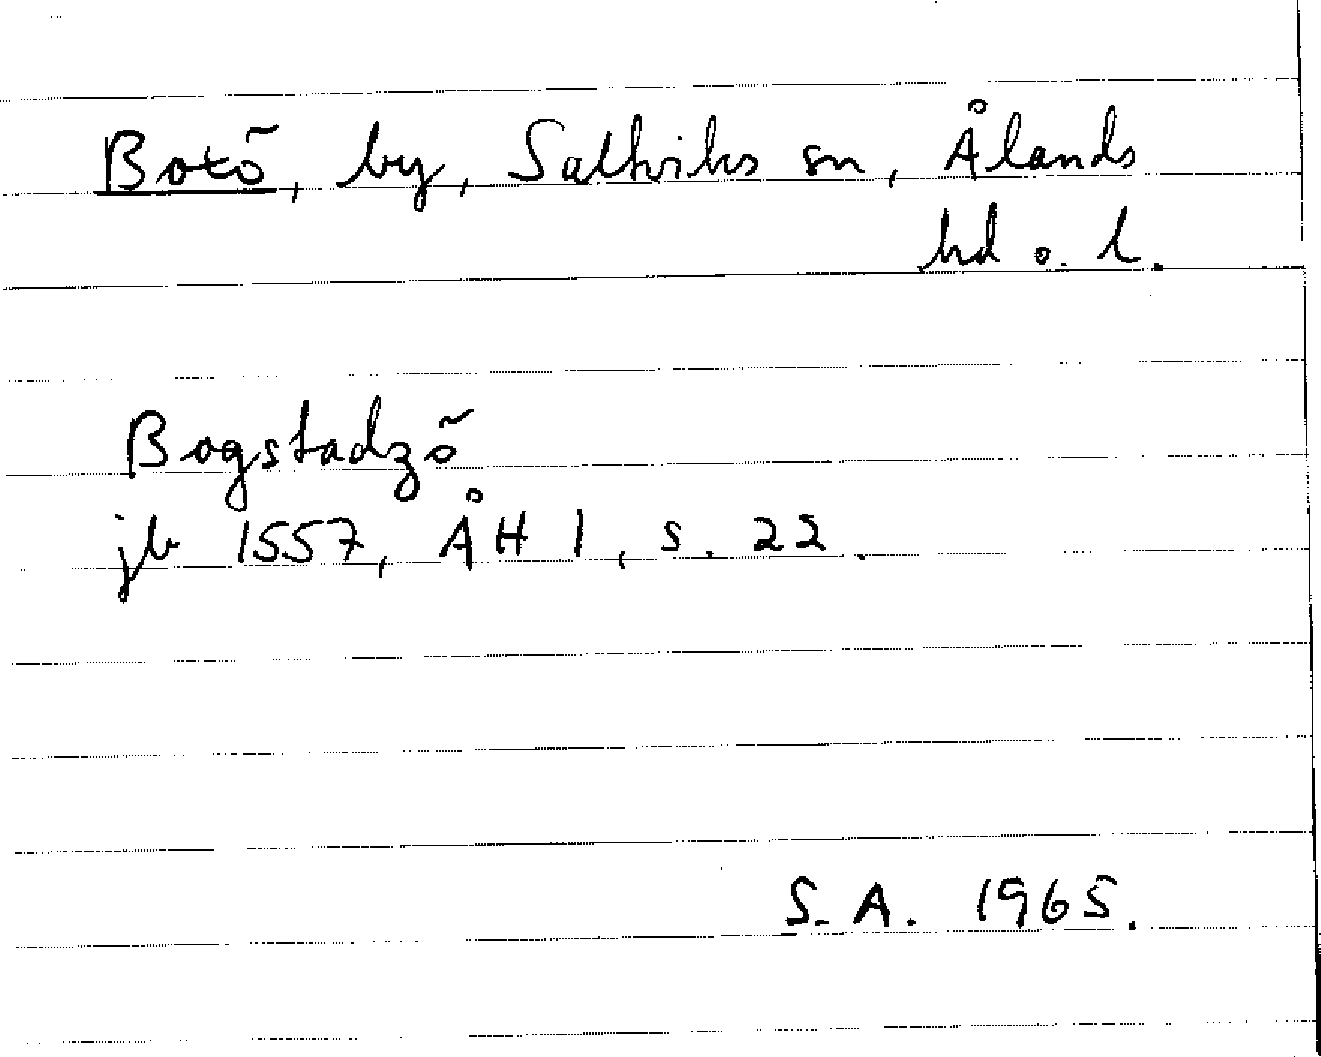 Botö, by, Saltviks sn, Ålands
hd o. l.
Bogstadzö
jb 1557, ÅH 1, s. 22.
S.A. 1965.